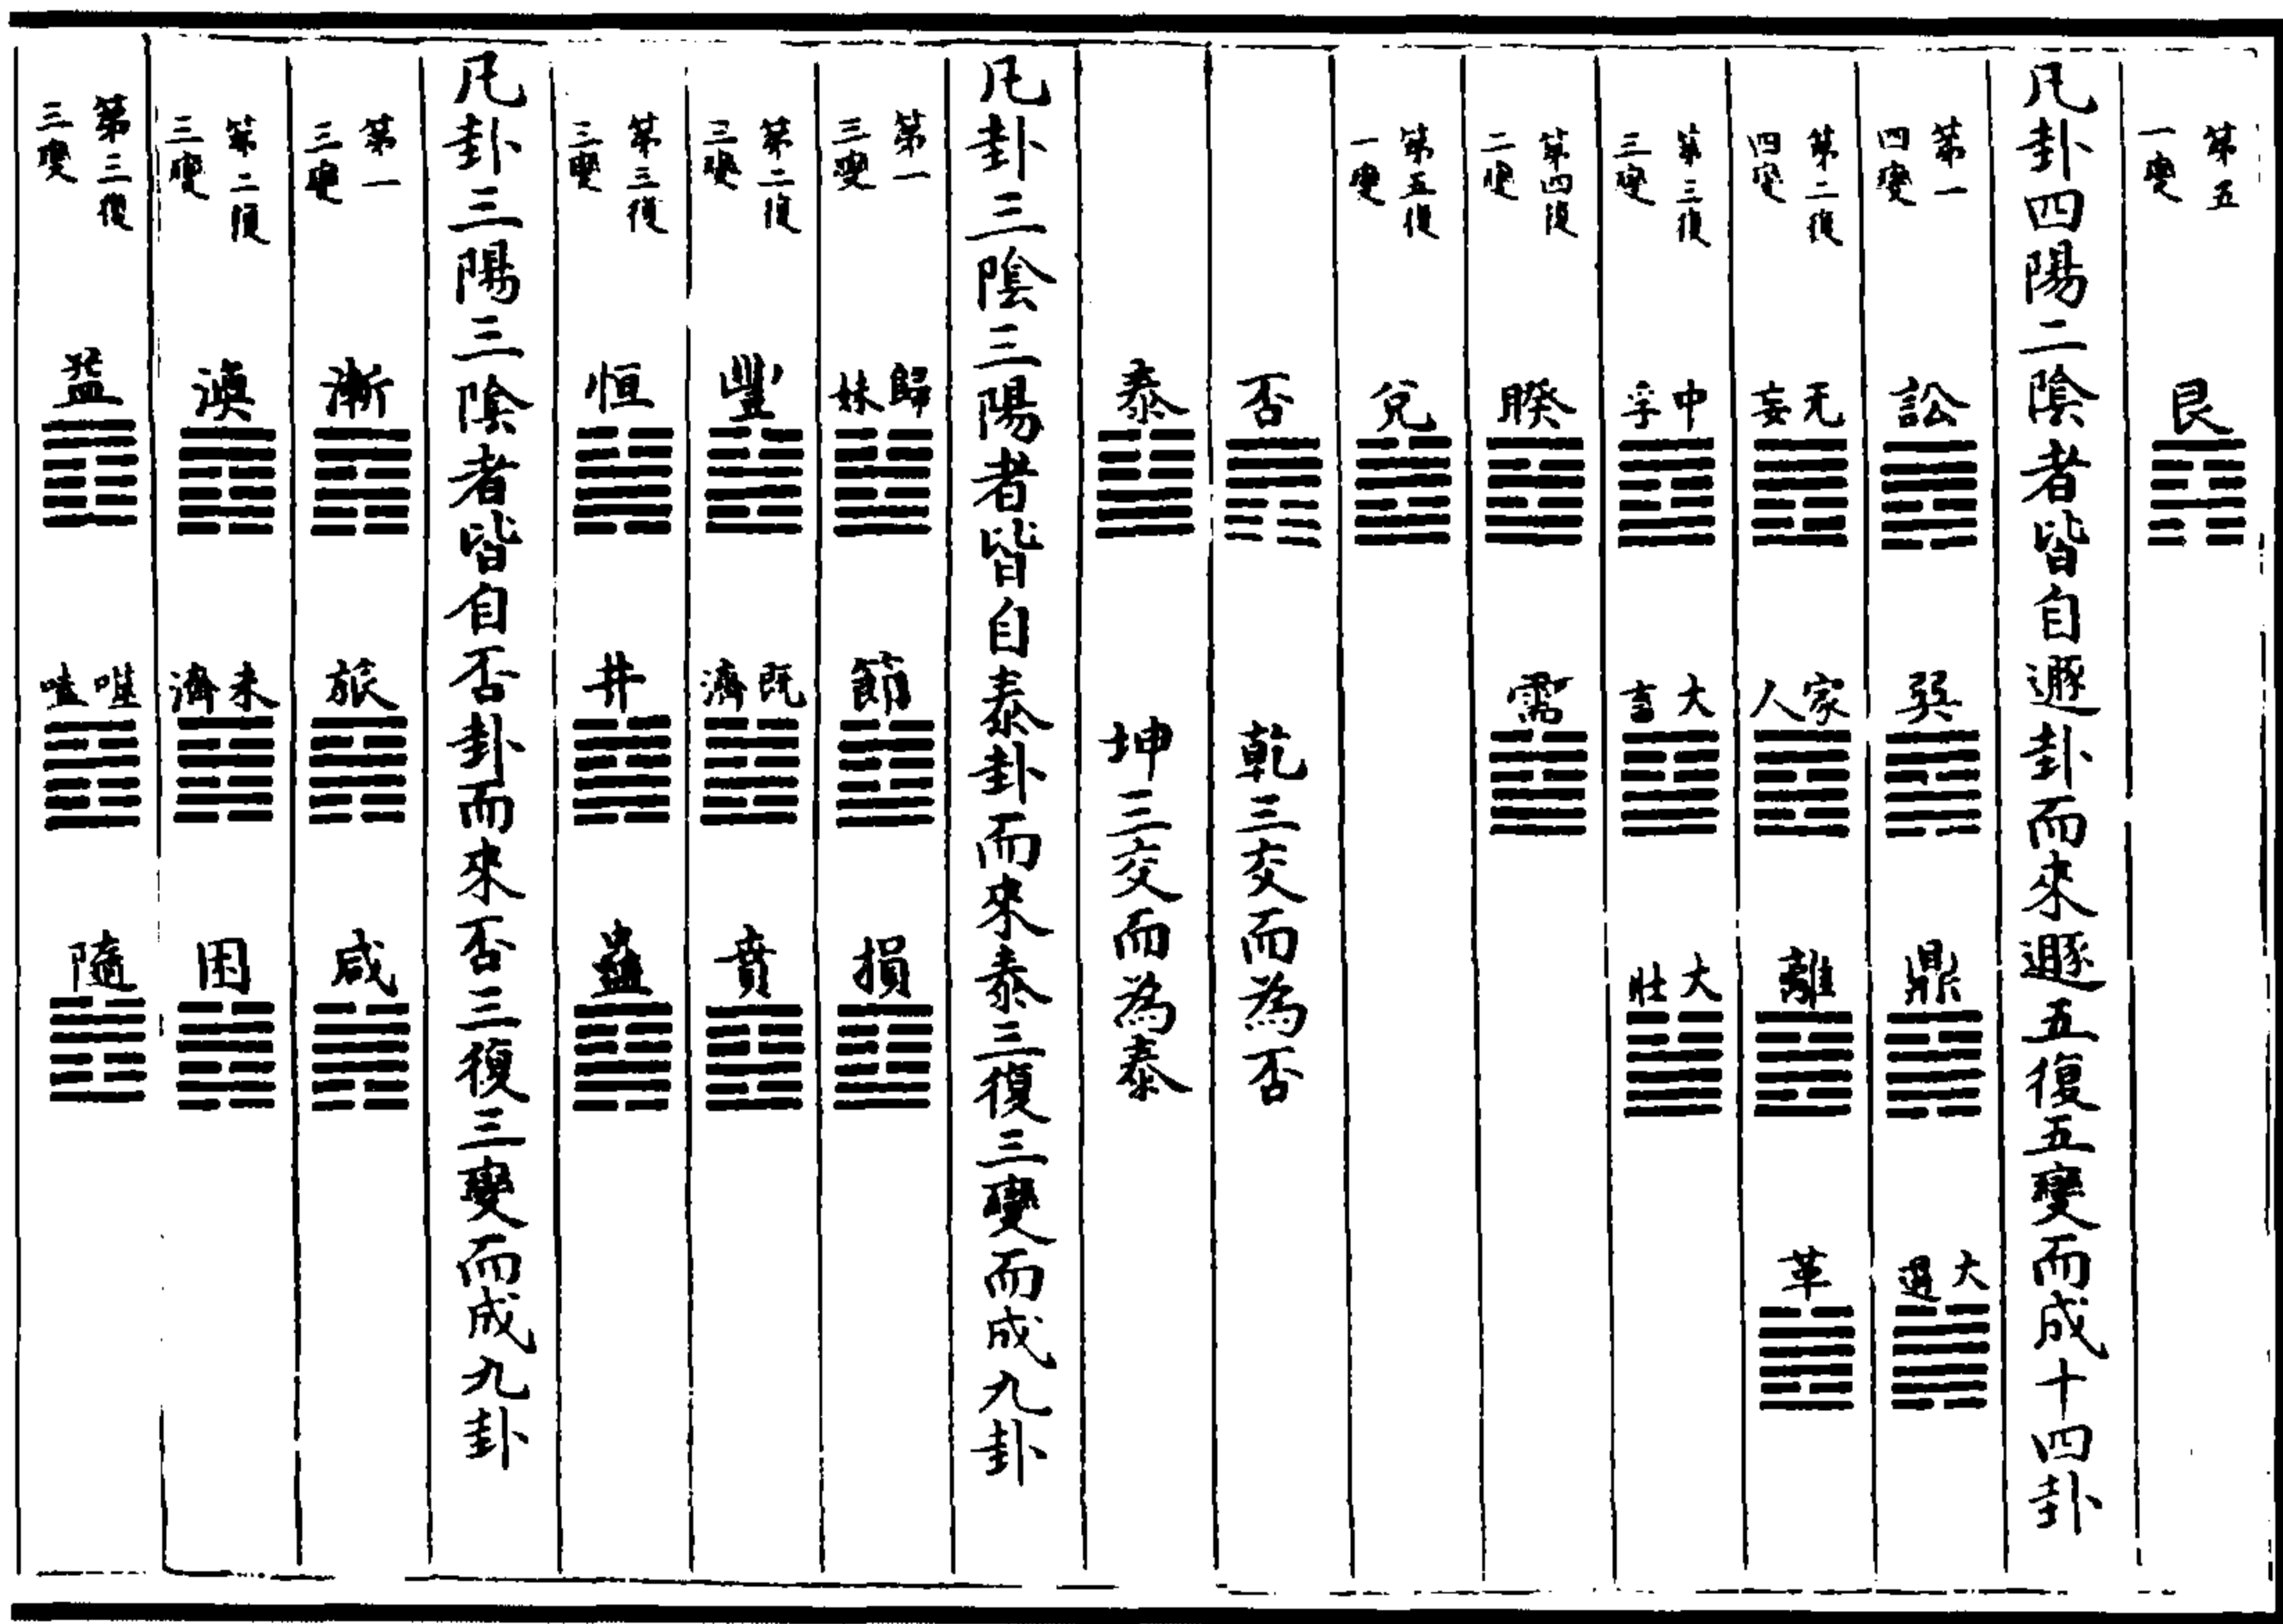 第五一變 艮
凡卦四陽二陰者皆自遯卦而來遯五復五變而成十四卦
第一四變 訟 巽 鼎 大過
第二復四變 无妄 家人 離 革
第三復三變 中孚 大畜 大壯
第四復二變 睽 需
第五復一變 兌
否 乾三交而為否
泰 坤三交而為泰
凡卦三陰三陽者皆自泰卦而來泰三復三變而成九卦
第一三變 歸妹 節 損
第二復三變 豐 既濟 賁
第三復三變 恒 井 蠱
凡卦三陽三陰者皆自否卦而來否三復三變而成九卦
第一三變 漸 旅 咸
第二復三變 渙 未濟 困
第三復三變 益 噬嗑 隨